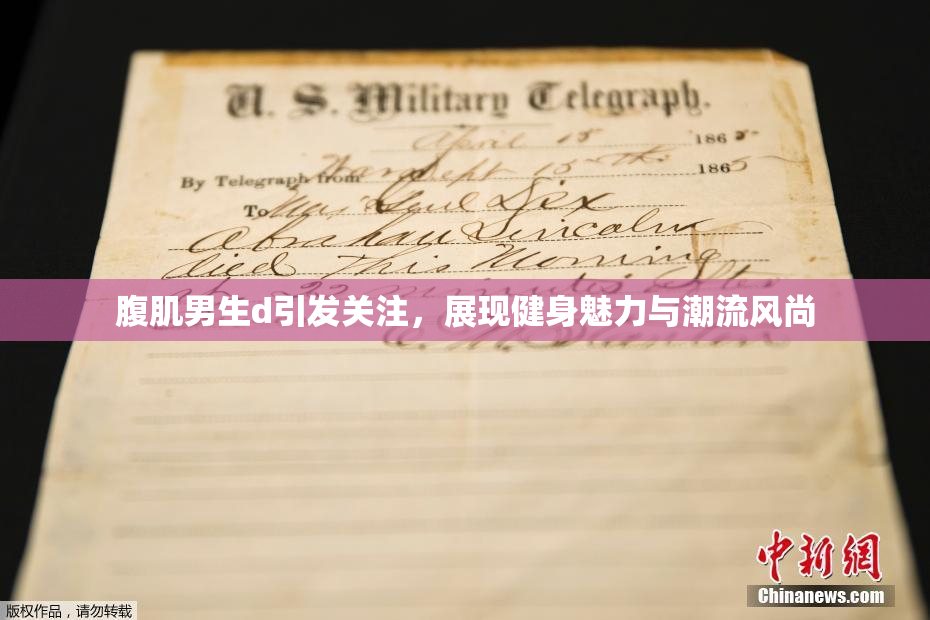 U. S. Military Telegraph.
April 15 1865
By Telegraph from War Dept 15th 1865
To Maj Genl Dix
Abraham Lincoln
died This Morning
at 22 minutes after
腹肌男生d引发关注，展现健身魅力与潮流风尚
E. M. Stanton
中新网
Chinanews.com
版权作品，请勿转载